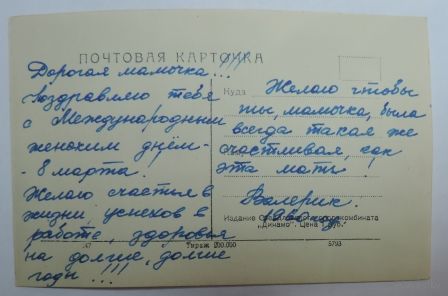 ПОЧТОВАЯ КАРТОЧКА
Дорогая мамочка!!!
Поздравляю тебя
с Международным
женским днём -
- 8 марта.
Желаю счастья в
жизни, успехов в
работе, здоровья
на долгие, долгие
годы!!!
Куда
Желаю чтобы
ты, мамочка, была
всегда такая же
счастливая, как
эта мать!
Валерик.
Издание
"Динамо". Цена
47
Тираж 200.000
5793